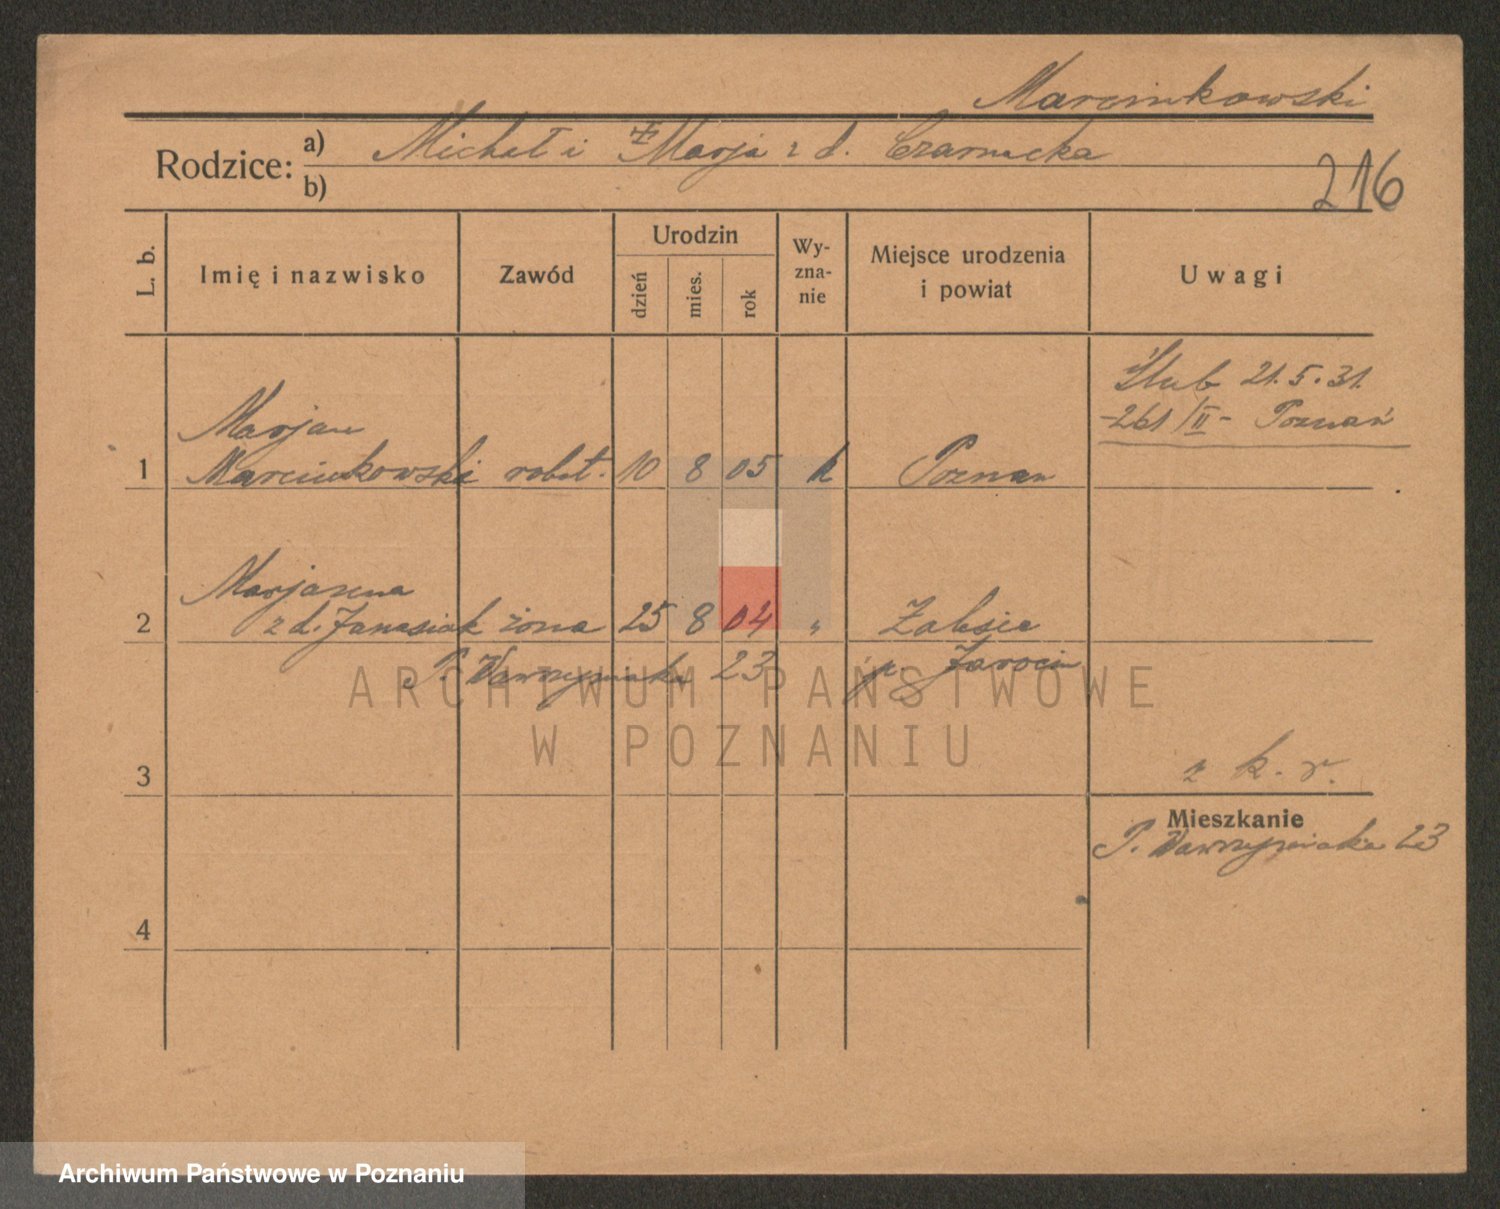 Marcinkowski
Rodzice: a) Michał i Marja z d. Czarnecka
b)
216
L. b. Imię i nazwisko Zawód Urodzin dzień mies. rok Wy-zna-nie Miejsce urodzenia i powiat Uwagi
Ślub 21.5.31.
-261/II- Poznań
Marjan
1 Marcinkowski robot. 10 8 05 k Poznan
Marjanna
2 z d. Janasiak żona 25 8 04 " Zalesie
P. Wawrzyniaka 23 p. Jarocin
3
z k. r.
Mieszkanie
P. Wawrzyniaka 23
4
ARCHIWUM PAŃSTWOWE
W POZNANIU
Archiwum Państwowe w Poznaniu